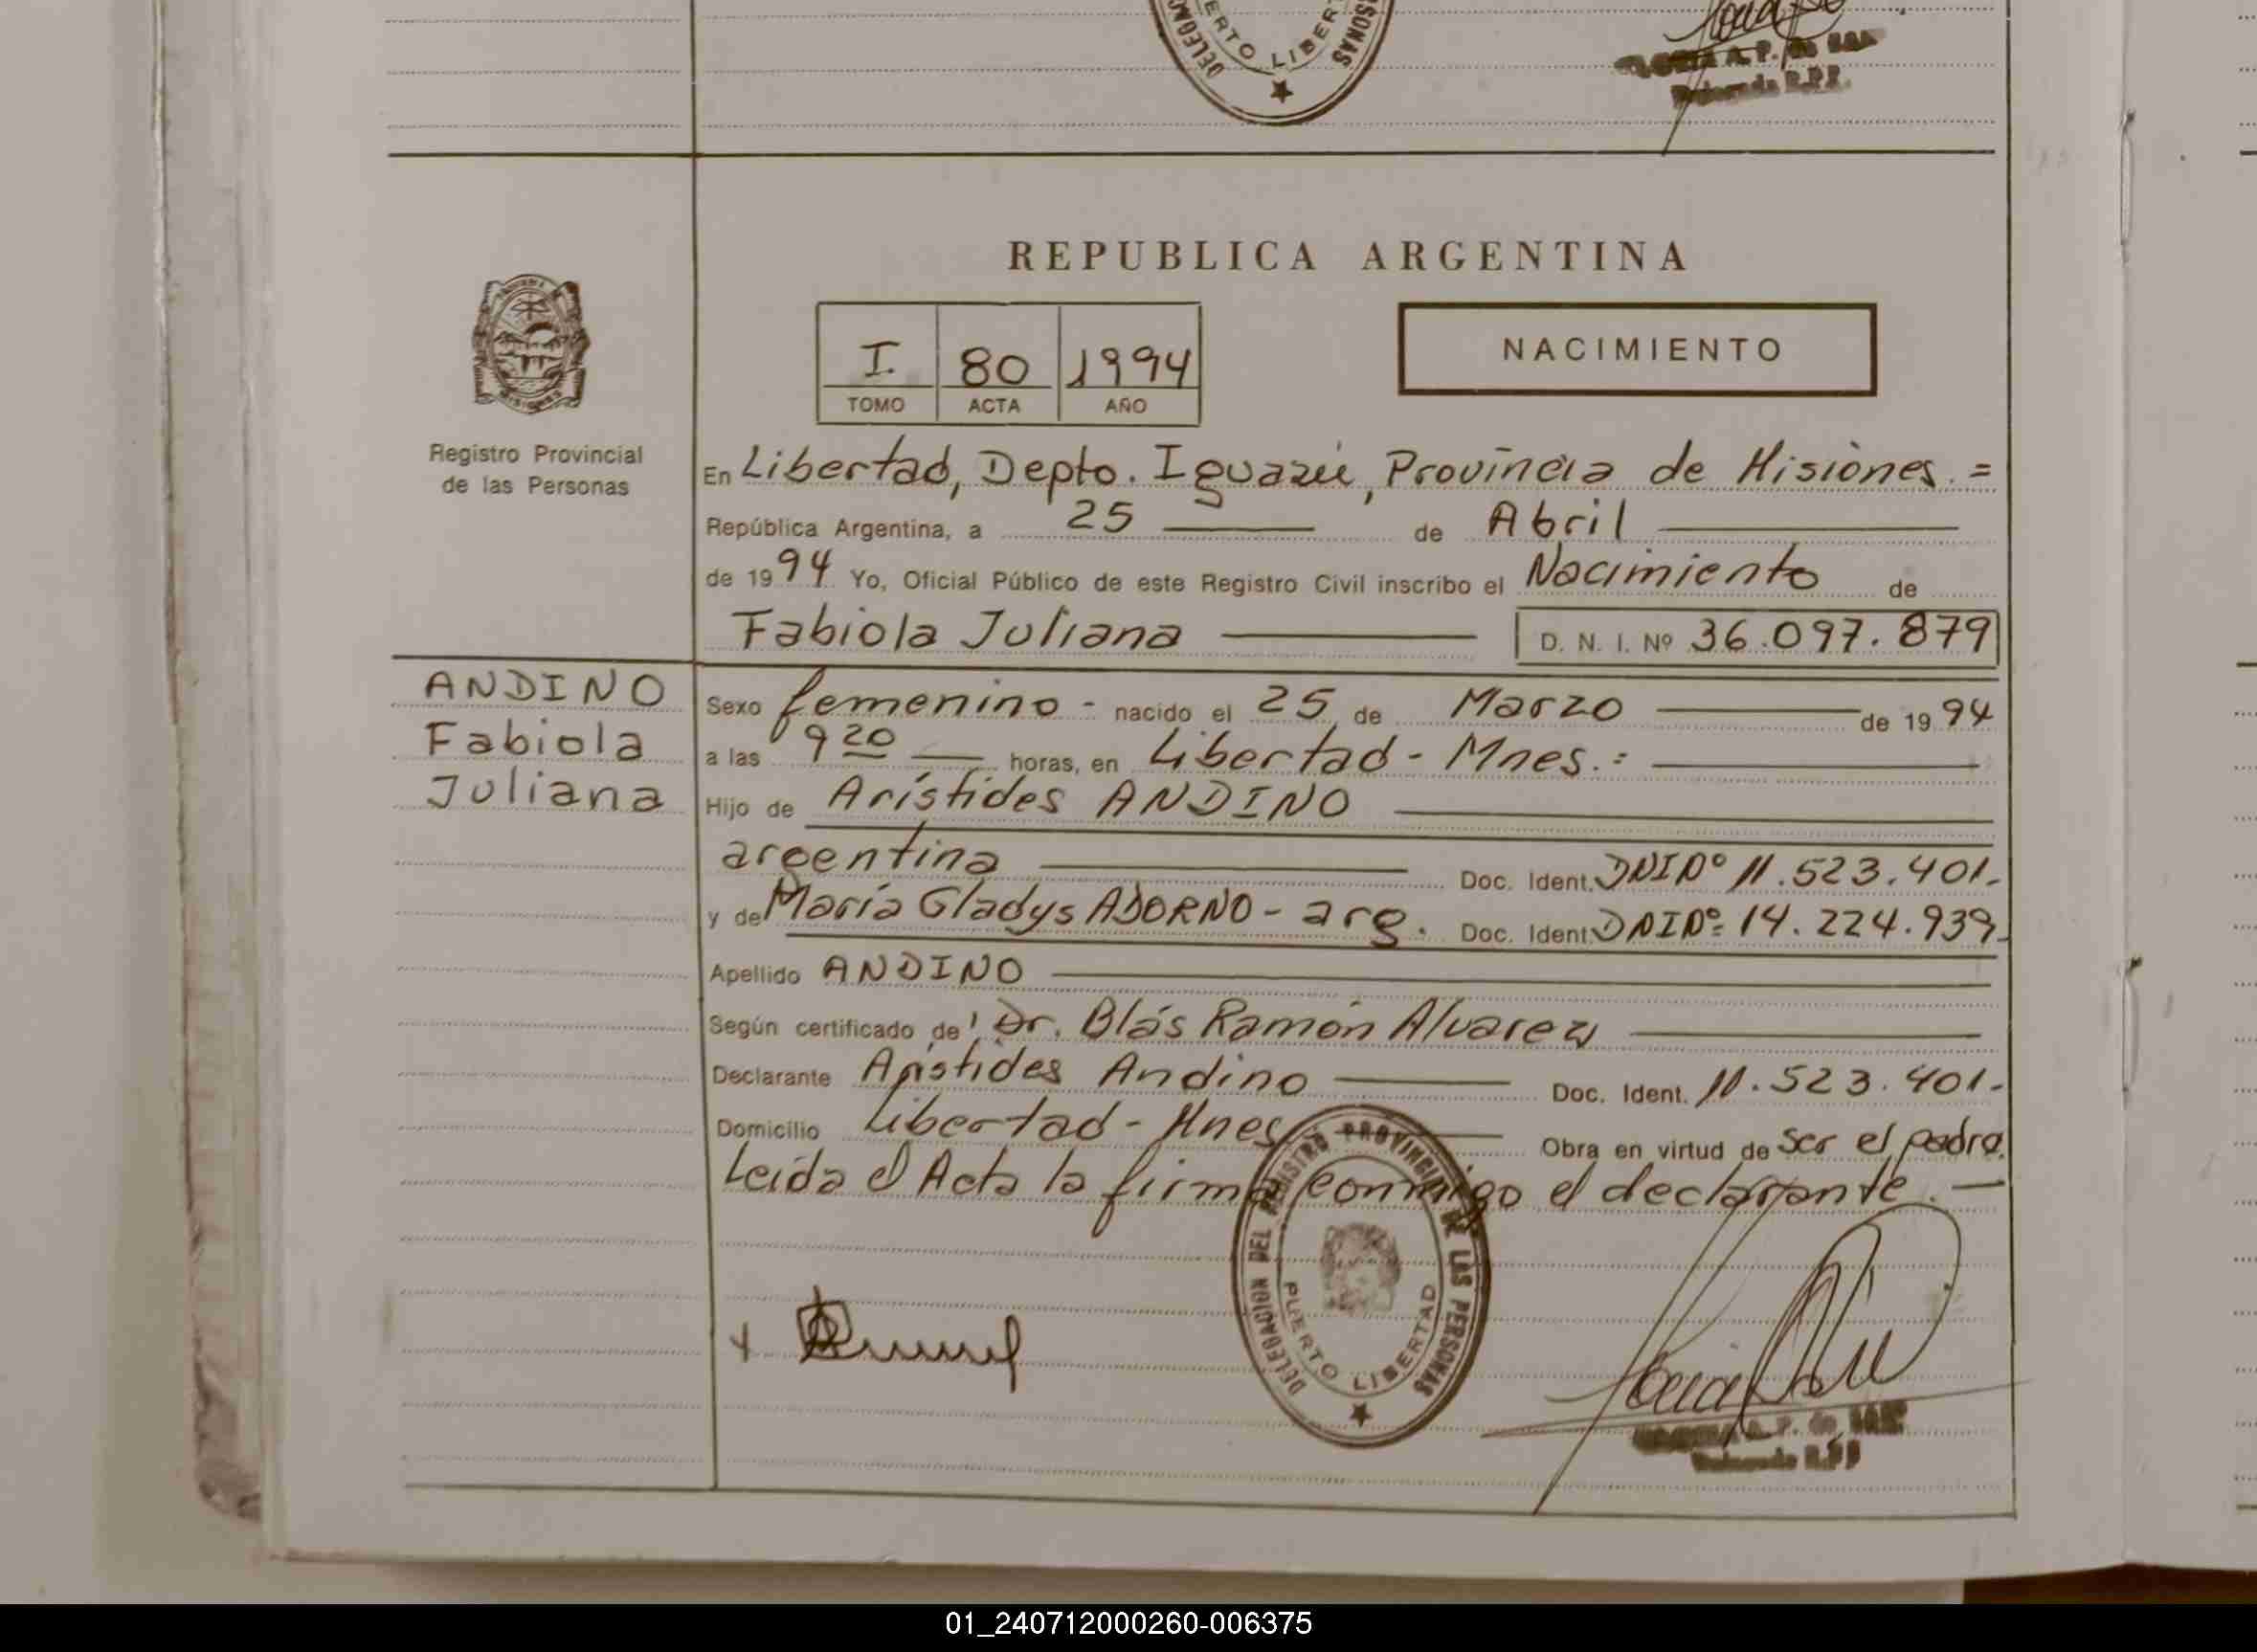 DELEGA
PUERTO LIBERT
SONAS
A. P. de
R.P.P.
REPUBLICA ARGENTINA
I 80 1994
TOMO ACTA AÑO
NACIMIENTO
MISIONES
Registro Provincial
de las Personas
En Libertad, Depto. Iguazú, Provincia de Misiones. =
República Argentina, a 25 de Abril
de 1994 Yo, Oficial Público de este Registro Civil inscribo el Nacimiento de
Fabiola Juliana D. N. I. Nº 36.097.879
ANDINO
Fabiola
Juliana
Sexo femenino - nacido el 25 de Marzo de 1994
a las 9 20 horas, en Libertad - Mnes.:
Hijo de Arístides ANDINO
argentina Doc. Ident. DNI Nº 11.523.401.-
y de María Gladys ADORNO - arg. Doc. Ident. DNI Nº: 14.224.939.
Apellido ANDINO
Según certificado de Dr. Blás Ramón Alvarez
Declarante Arístides Andino Doc. Ident. 11.523.401.-
Domicilio Libertad - Mnes Obra en virtud de ser el padre.
Leída el Acta la firma conmigo el declarante. -
DELEGACION DEL REGISTRO PROVINCIAL DE LAS PERSONAS
PUERTO LIBERTAD
A. P. de
01_240712000260-006375